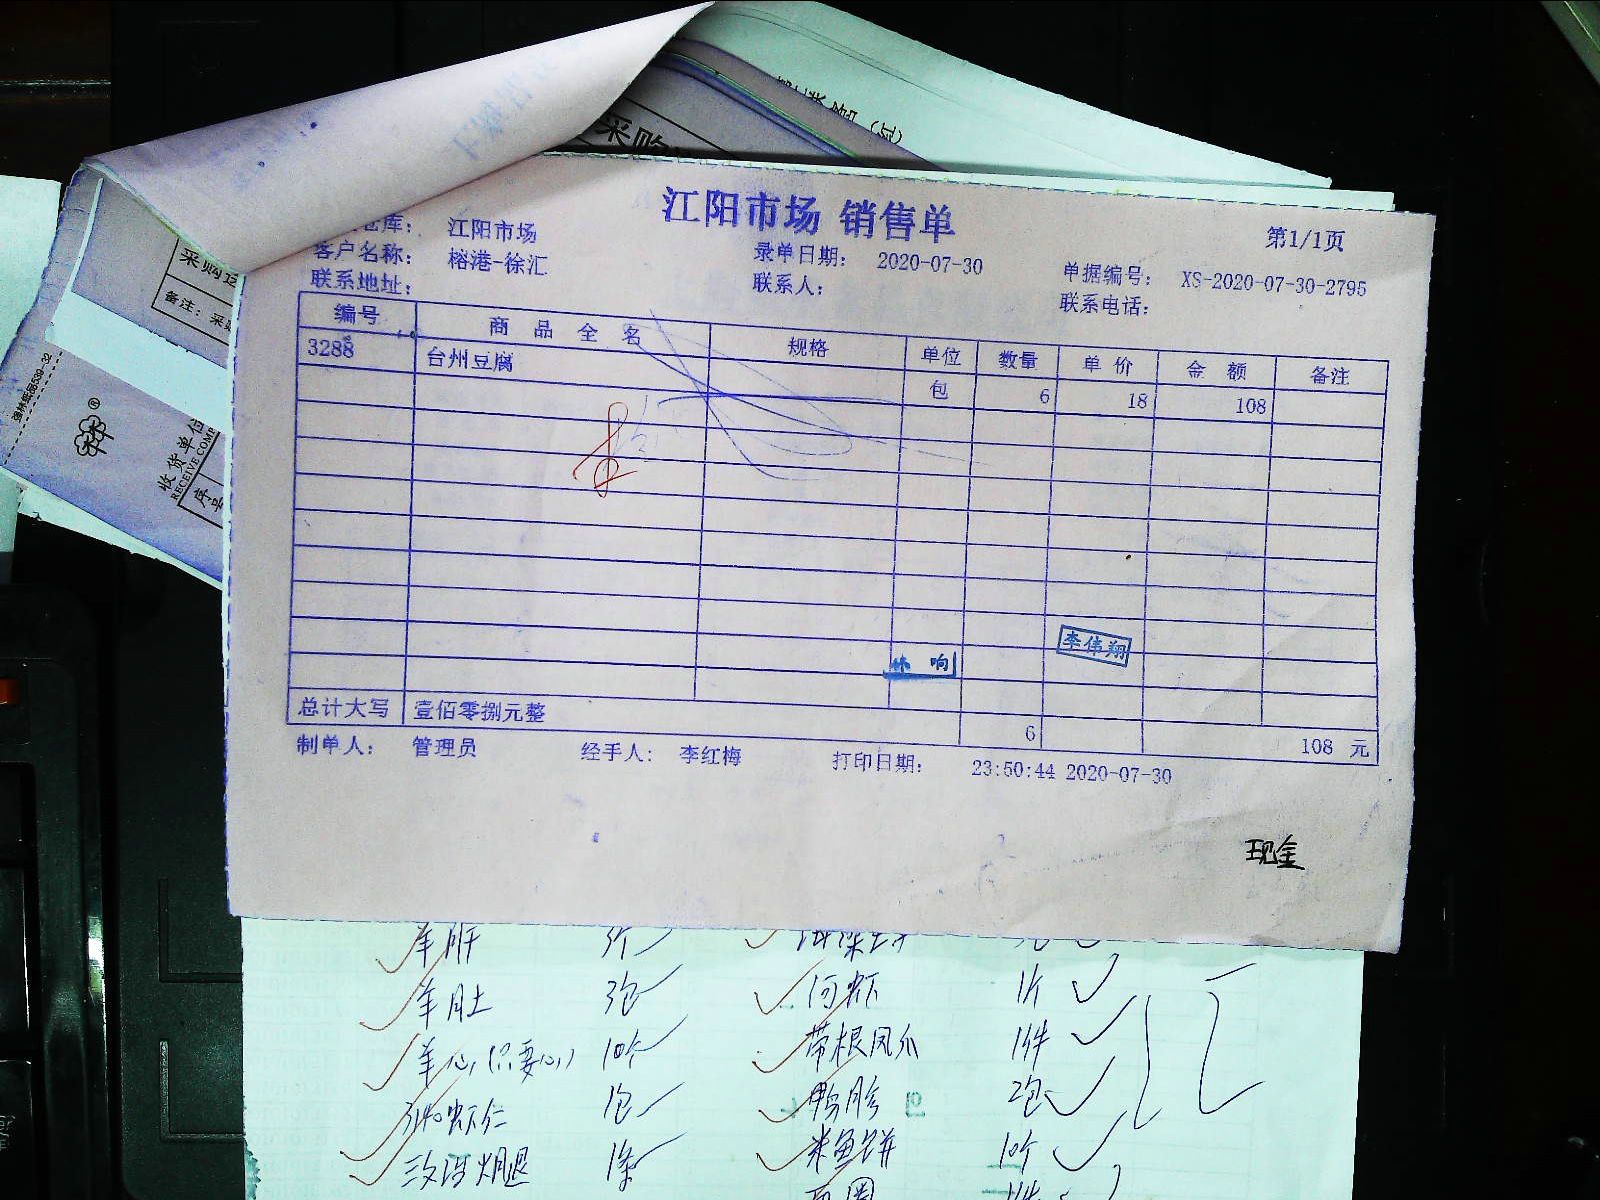 采购
江阳市场 销售单
第1/1页
仓库： 江阳市场
客户名称： 榕港-徐汇
录单日期： 2020-07-30
单据编号： XS-2020-07-30-2795
联系地址：
联系人：
联系电话：
编号 商品全名 规格 单位 数量 单价 金额 备注
3288 台州豆腐 包 6 18 108
李伟翔
响
总计大写 壹佰零捌元整 6 108 元
制单人： 管理员 经手人： 李红梅 打印日期： 23:50:44 2020-07-30
现金
采购
备注：采
强林纸品539-32
林®
收货单位
RECEIVE COMP
序号
羊肝
羊肚 3包
河虾 1斤
羊心(只要心) 10个
带根凤爪 1件
虾仁 1包
鸭胗 2包
火腿 1条
米鱼饼 10个